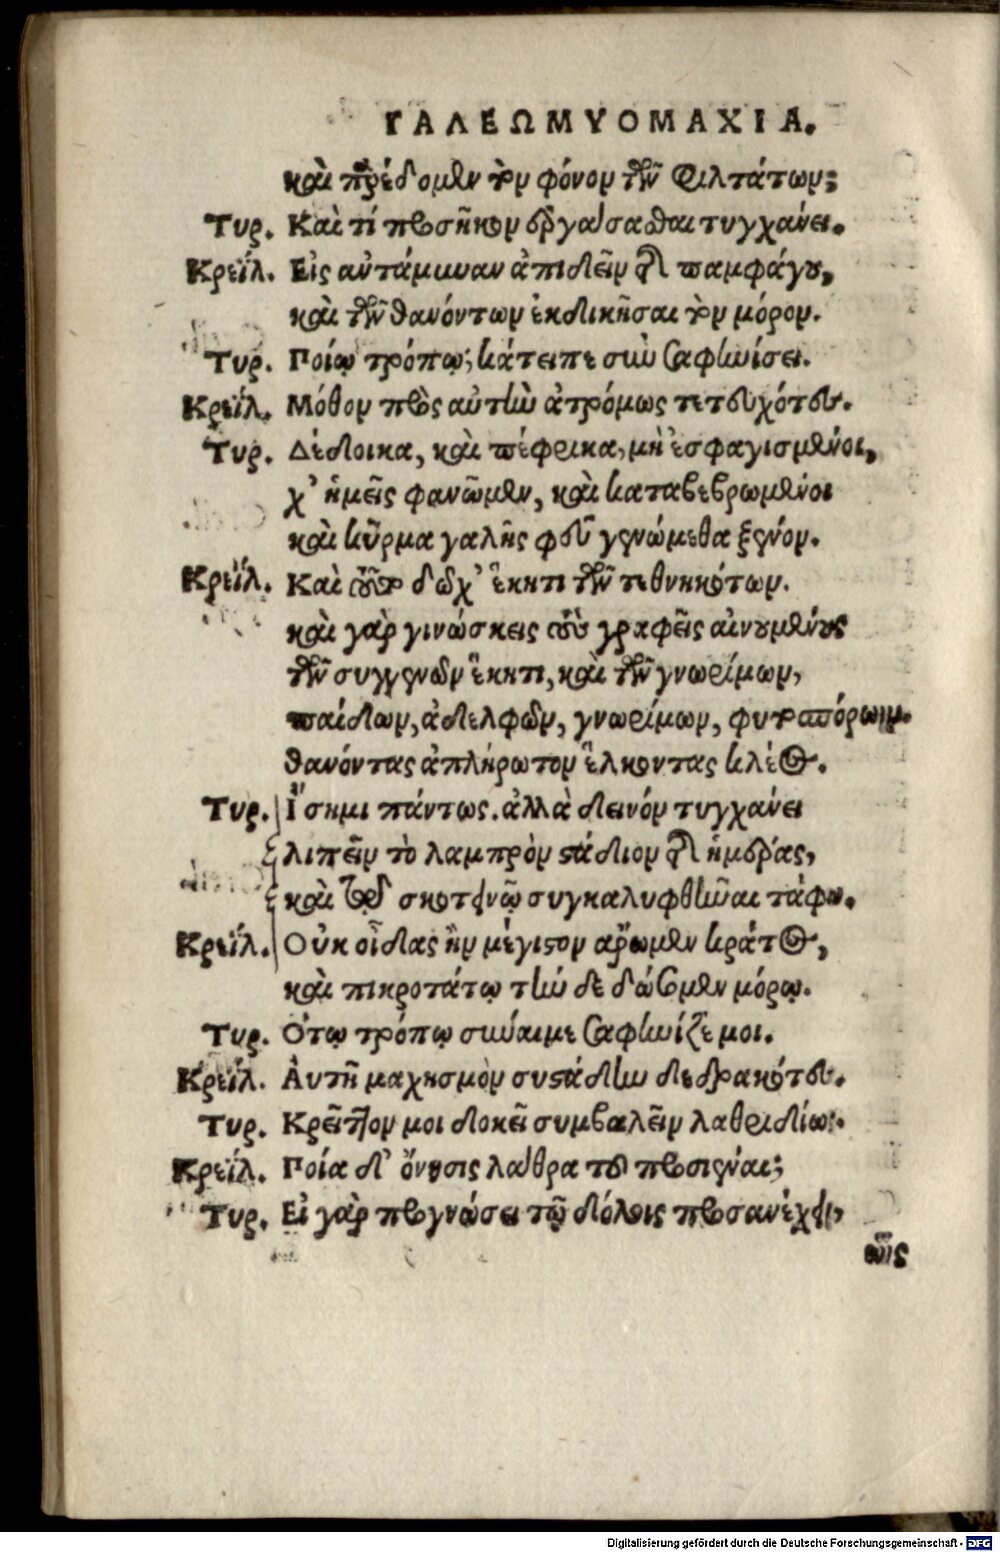 ΓΑΛΕΩΜΥΟΜΑΧΙΑ.
καὶ παρέδομεν τὸν φόνον τῶν φιλτάτων;
Τυρ. Καὶ τί προσῆκον ἐργάσασθαι τυγχάνει.
Κρεΐλ. Εἰς αὐτάμυναν ἀπιδεῖν τοῦ παμφάγου,
καὶ τῶν θανόντων ἐκδικῆσαι τὸν μόρον.
Τυρ. Ποίῳ τρόπῳ; κάτειπε σὺν σαφηνίσει.
Κρεΐλ. Μόθον πρὸς αὐτὴν ἀτρόμως τετευχότες.
Τυρ. Δέδοικα, καὶ πέφρικα, μὴ ἐσφαγισμένοι,
χ' ἡμεῖς φανῶμεν, καὶ καταβεβρωμένοι
καὶ κῦρμα γαλῆς φεῦ γενώμεθα ξένον.
Κρεΐλ. Καὶ τοῦτο δόχ' ἕκητι τῶν τεθνηκότων.
καὶ γὰρ γινώσκεις τοὺς γραφεῖς αἰνουμένους
τῶν συγγενῶν ἕκητι, καὶ τῶν γνωρίμων,
παίδων, ἀδελφῶν, γνωρίμων, φυτοσπόρων.
θανόντας ἀπλήρωτον ἕλκοντας κλέος.
Τυρ. Ἴσημι πάντως. ἀλλὰ δεινὸν τυγχάνει
λιπεῖν τὸ λαμπρὸν στάδιον τοῦ ἡμέρας,
καὶ τῷδε σκοτεινῷ συγκαλυφθῆναι τάφῳ.
Κρεΐλ. Οὐκ οἶδας ἢν μέγιστον ἄρωμεν κράτος,
καὶ πικροτάτῳ τήνδε δώσομεν μόρῳ.
Τυρ. Ὅτῳ τρόπῳ σύναιμε σαφήνιζέ μοι.
Κρεΐλ. Αὐτῇ μαχησμὸν συστάδην δεδρακότες.
Τυρ. Κρεῖττον μοι δοκεῖ συμβαλεῖν λαθριδίως.
Κρεΐλ. Ποία δ' ὄνησις λάθρα τε προσιέναι;
Τυρ. Εἰ γὰρ προγνώσει τῷ δόλοις προσανέχειν,
τοῖς
Digitalisierung gefördert durch die Deutsche Forschungsgemeinschaft - DFG